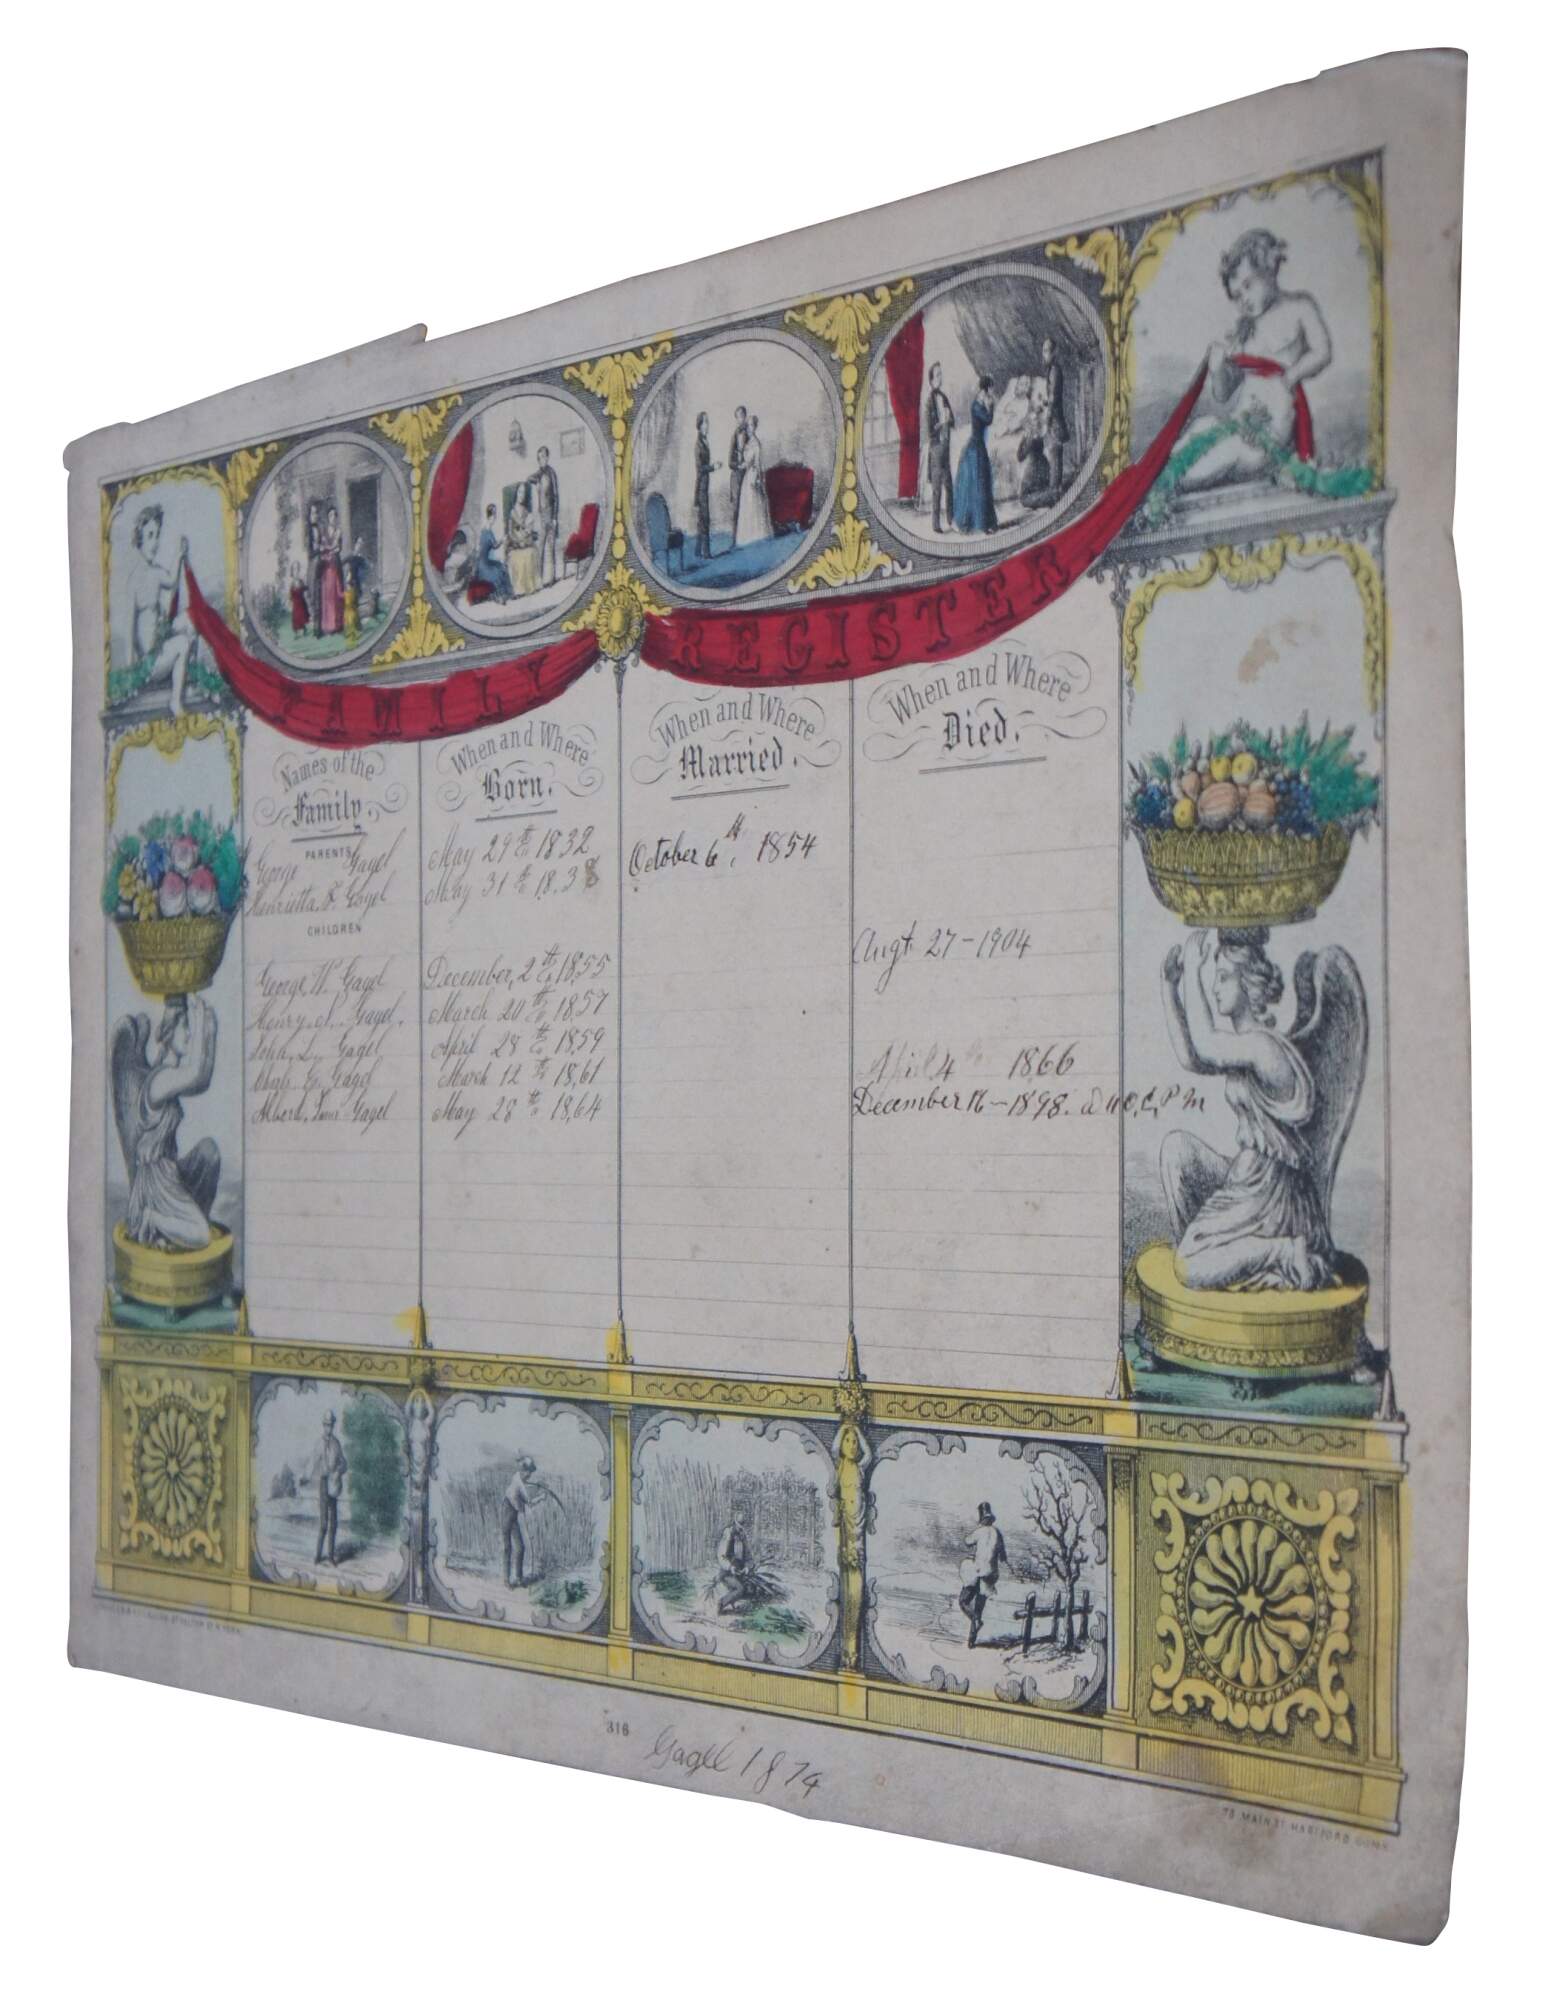 FAMILY REGISTER.
Names of the Family.
When and Where Born.
When and Where Married.
When and Where Died.
PARENTS
George Gagel May 29th 1832 October 6th, 1854
Henrietta. Gagel May 31th 1838
CHILDREN
George, W. Gagel December, 2th 1855 Augt 27-1904
Henry. Gagel. March 20th 1857
John, L. Gagel April 28th 1859
Gagel March 12th 1861 April 4 1866
Albert, Gagel May 28th 1864 December 16-1898.
316
Gagel 1874
N. YORK.
75 MAIN ST. HARTFORD CONN.